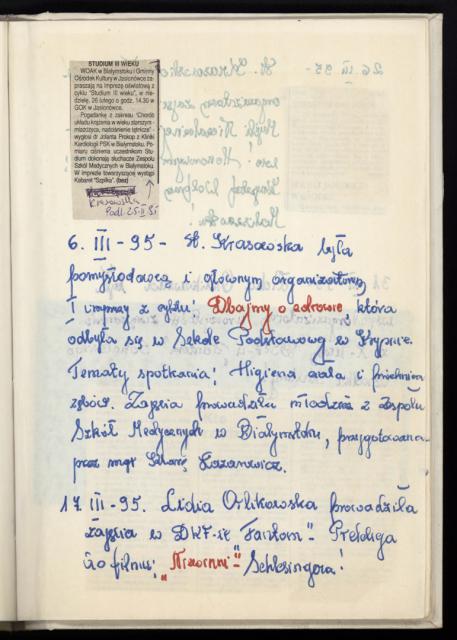 STUDIUM III WIEKU
WOAK w Białymstoku i Gminny
Ośrodek Kultury w Jasionówce za-
praszają na imprezę oświatową z
cyklu "Studium III wieku", w nie-
dzielę, 26 lutego o godz. 14.30 w
GOK w Jasionówce.
Pogadankę z zakresu "Chorób
układu krążenia w wieku starszym -
miażdżyca, nadciśnienie tętnicze" -
wygłosi dr Jolanta Prokop z Kliniki
Kardiologii PSK w Białymstoku. Po-
miaru ciśnienia uczestnikom Stu-
dium dokonają słuchacze Zespołu
Szkół Medycznych w Białymstoku.
W imprezie towarzyszącej wystąpi
Kabaret "Szpilka". (bez)
Krasowska
Podl. 25.II.95
6. III - 95 - H. Krasowska była
pomysłodawcą i głównym organizatorem
I imprezy z cyklu: Dbajmy o zdrowie, która
odbyła się w Szkole Podstawowej w Krypnie.
Tematy spotkania: Higiena ciała i próchnica
zębów. Zajęcia prowadziła młodzież z Zespołu
Szkół Medycznych w Białymstoku, przygotowana
przez mgr Kazanowicz.
17. III - 95. Lidia Orlikowska prowadziła
zajęcia w DKF-ie "Fantom" - Prelekcja
do filmu: "Niewinni" - Schlesingera!